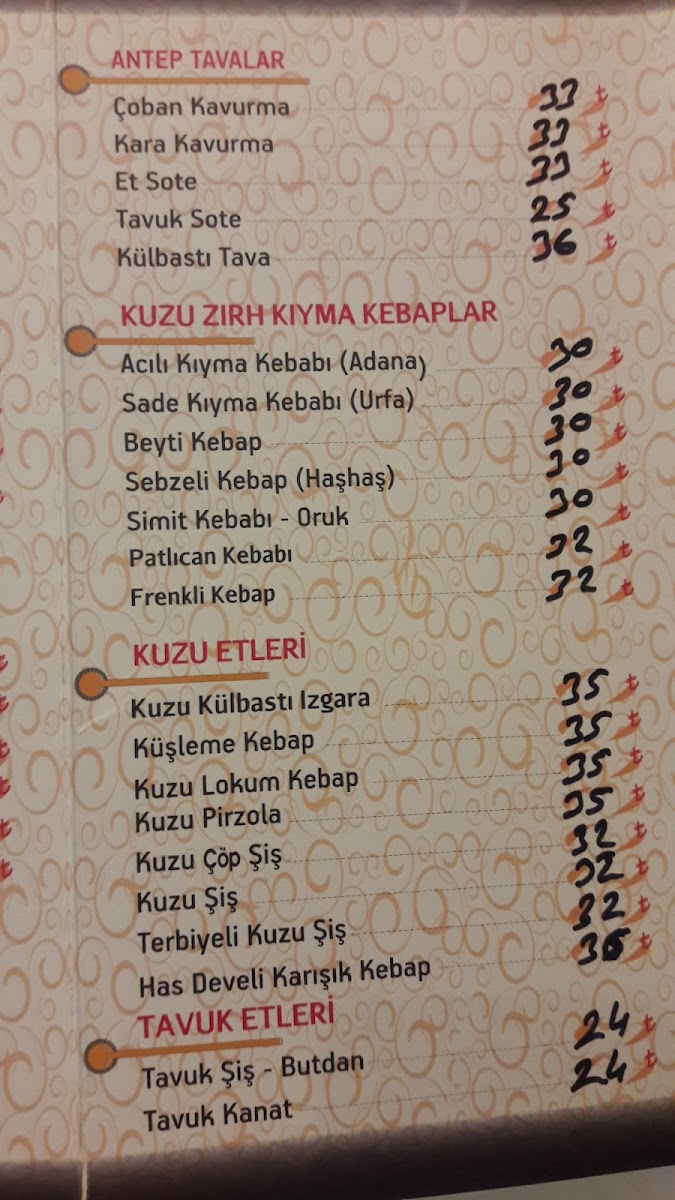 ANTEP TAVALAR
Çoban Kavurma 33 ₺
Kara Kavurma 33 ₺
Et Sote 33 ₺
Tavuk Sote 25 ₺
Külbastı Tava 36 ₺
KUZU ZIRH KIYMA KEBAPLAR
Acılı Kıyma Kebabı (Adana) 30 ₺
Sade Kıyma Kebabı (Urfa) 30 ₺
Beyti Kebap 30 ₺
Sebzeli Kebap (Haşhaş) 30 ₺
Simit Kebabı - Oruk 30 ₺
Patlıcan Kebabı 32 ₺
Frenkli Kebap 32 ₺
KUZU ETLERİ
Kuzu Külbastı Izgara 35 ₺
Küşleme Kebap 35 ₺
Kuzu Lokum Kebap 35 ₺
Kuzu Pirzola 35 ₺
Kuzu Çöp Şiş 32 ₺
Kuzu Şiş 32 ₺
Terbiyeli Kuzu Şiş 32 ₺
Has Develi Karışık Kebap 36 ₺
TAVUK ETLERİ
Tavuk Şiş - Butdan 24 ₺
Tavuk Kanat 24 ₺